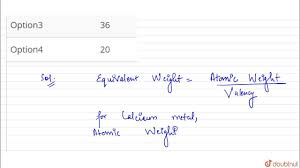 Option3 36
Option4 20
Sol: Equivalent Weight = Atomic Weight
Valency
for Calcium metal,
Atomic Weight
doubtnut